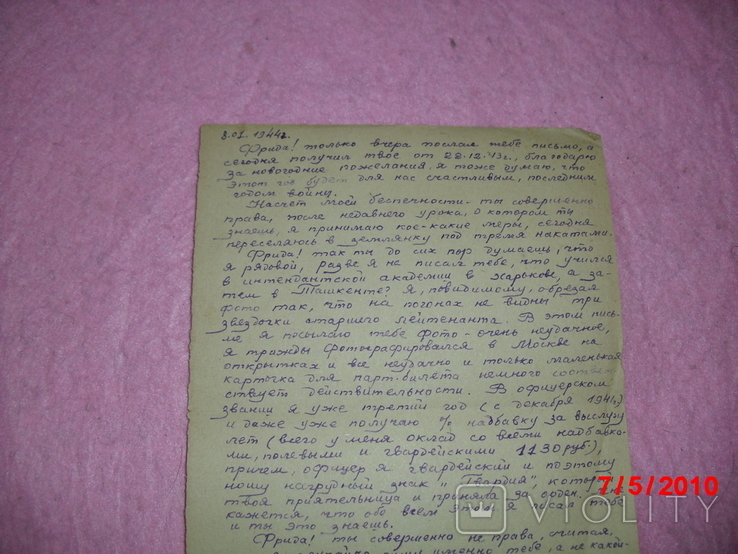 8.01.1944г.
Фрида! только вчера послал тебе письмо, а
сегодня получил твое от 22.12.43г., благодарю
за новогодние пожелания, я тоже думаю, что
этот год будет для нас счастливым, последним
годом войны.
Насчет моей беспечности - ты совершенно
права, после недавнего урока, о котором ты
знаешь, я принимаю кое-какие меры, сегодня
переселяюсь в землянку под тремя накатами.
Фрида! так ты до сих пор думаешь, что
я рядовой, разве я не писал тебе, что учился
в интендантской академии в Харькове, а за-
тем в Ташкенте? Я, повидимому, обрезал
фото так, что на погонах не видны три
звездочки старшего лейтенанта. В этом пись-
ме я посылаю тебе фото - очень неудачное,
я трижды фотографировался в Москве на
открытках и все неудачно и только маленькая
карточка для парт-билета немного соответ
ствует действительности. В офицерском
звании я уже третий год (с декабря 1941г.)
и даже уже получаю % надбавку за выслугу
лет (всего у меня оклад со всеми надбавка-
ми, полевыми и гвардейскими 1130 руб.),
причем, офицер я гвардейский и поэтому
ношу нагрудный знак "Гвардия", который
твоя приятельница и приняла за орден.
кажется, что обо всем этом я писал тебе
и ты это знаешь.
Фрида! ты совершенно не права, считая,
именно тебе, а не какой-
7/5/2010
VIOLITY